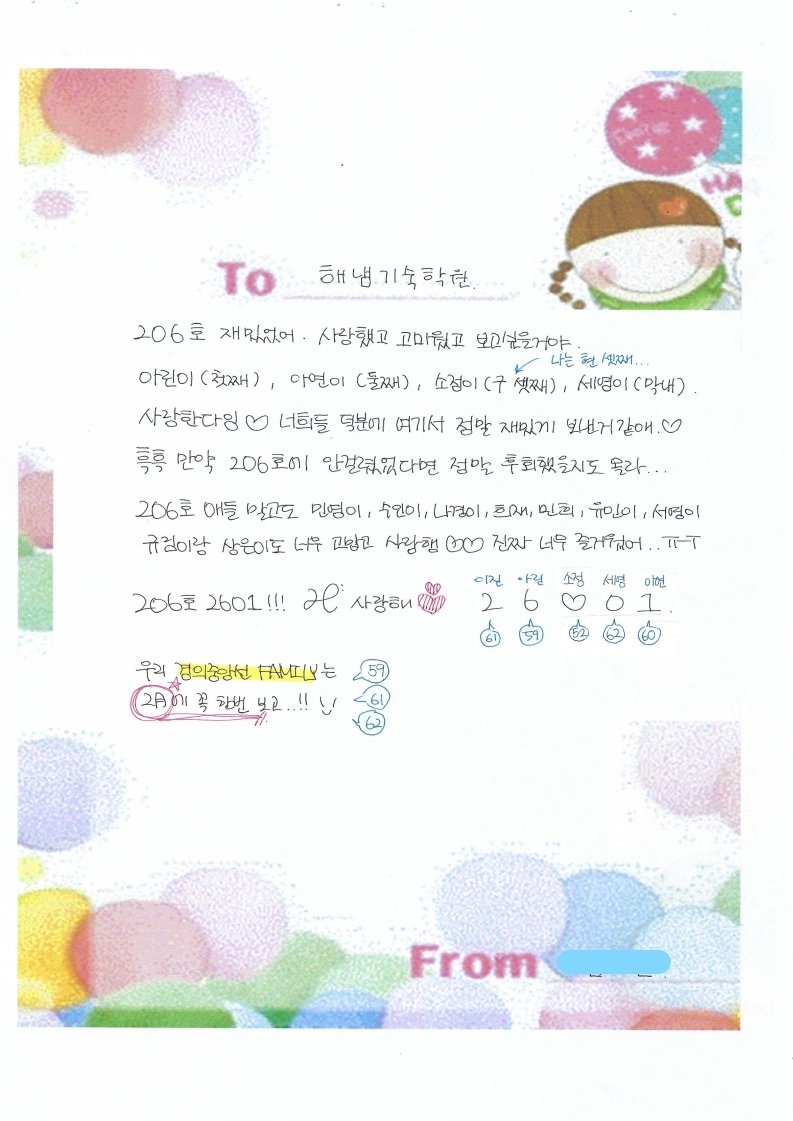 To 해냄기숙학원.
206호 재밌었어. 사랑했고 고마웠고 보고싶을거야.
나는 현 셋째...
아린이(첫째), 아연이(둘째), 소정이(구 셋째), 세영이(막내).
사랑한다잉♡ 너희들 덕분에 여기서 정말 재밌게 보낸거같애.♡
흑흑 만약 206호에 안걸렸었다면 정말 후회했을지도 몰라...
206호 애들 말고도 민영이, 수인이, 나경이, 희재, 민희, 유민이, 서영이
규림이랑 상은이도 너무 고맙고 사랑햄♡♡♡ 진짜 너무 즐거웠어..ㅠㅜ
이진 아린 소정 세영 아연
206호 2601!!! 사랑해 2 6 ♡ 0 1.
61 59 52 62 60
우리 경의중앙선 FAMILY는 59
2月에 꼭 한번 보고..!! 61
62
From